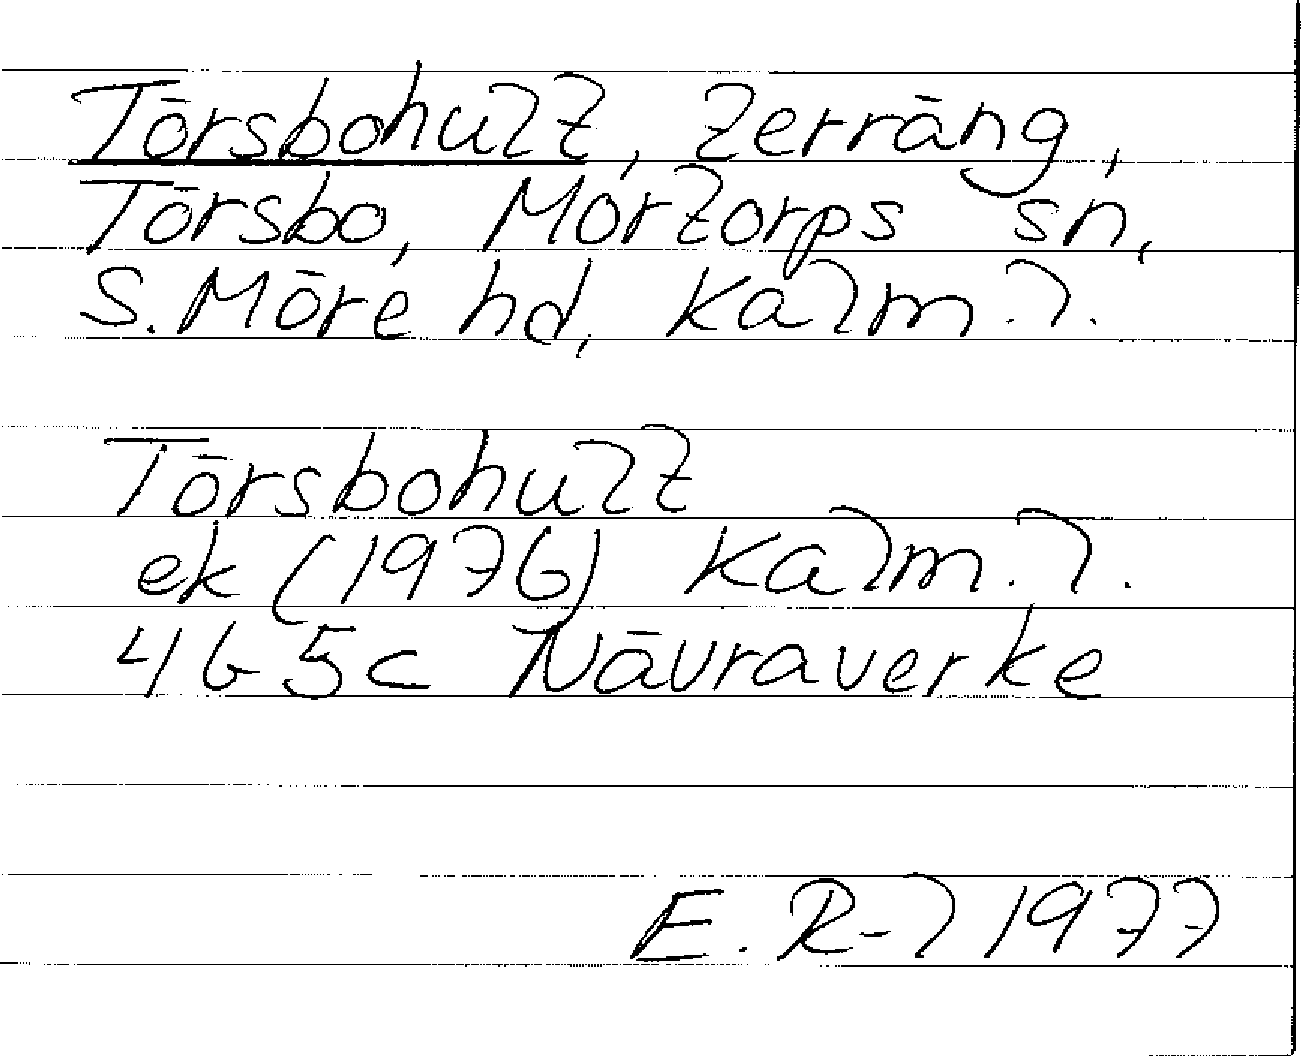 Törsbohult, terräng,
Törsbo, Mortorps sn,
S. Möre hd, Kalm. l.
Törsbohult
ek (1976) Kalm. l.
4G 5c Nävraverke
E. R-l 1977